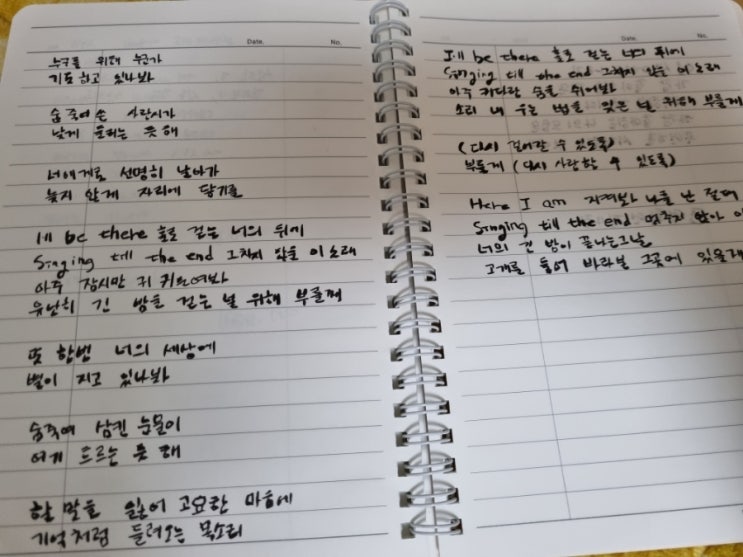 Date. No.
누구를 위해 누군가
기도하고 있나봐
숨 죽여 쓴 사랑시가
낮게 들리는 듯 해
너에게로 선명히 날아가
늦지 않게 자리에 닿기를
I'll be there 홀로 걷는 너의 뒤에
Singing till the end 그치지 않을 이 노래
아주 잠시만 귀 기울여봐
유난히 긴 밤을 걷는 널 위해 부를게
또 한번 너의 세상에
별이 지고 있나봐
숨죽여 삼킨 눈물이
여기 흐르는 듯 해
할 말을 잃어 고요한 마음에
기억처럼 들려오는 목소리
Date. No.
I'll be there 홀로 걷는 너의 뒤에
Singing till the end 그치지 않을 이 노래
아주 커다란 숨을 쉬어봐
소리 내 우는 법을 잊은 널 위해 부를게
(다시 걸어갈 수 있도록)
부를게 (다시 사랑할 수 있도록)
Here I am 지켜봐 나를 난 절대
Singing till the end 멈추지 않아 이
너의 긴 밤이 끝나는그날
고개를 들어 바라본 그곳에 있을게